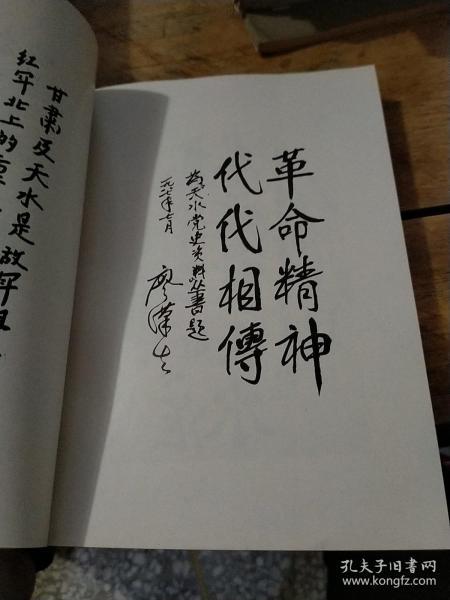 革命精神
代代相傳
为天水党史资料丛书题
一九八七年七月
廖漢生
甘肃及天水是
红军北上的
孔夫子旧书网
www.kongfz.com